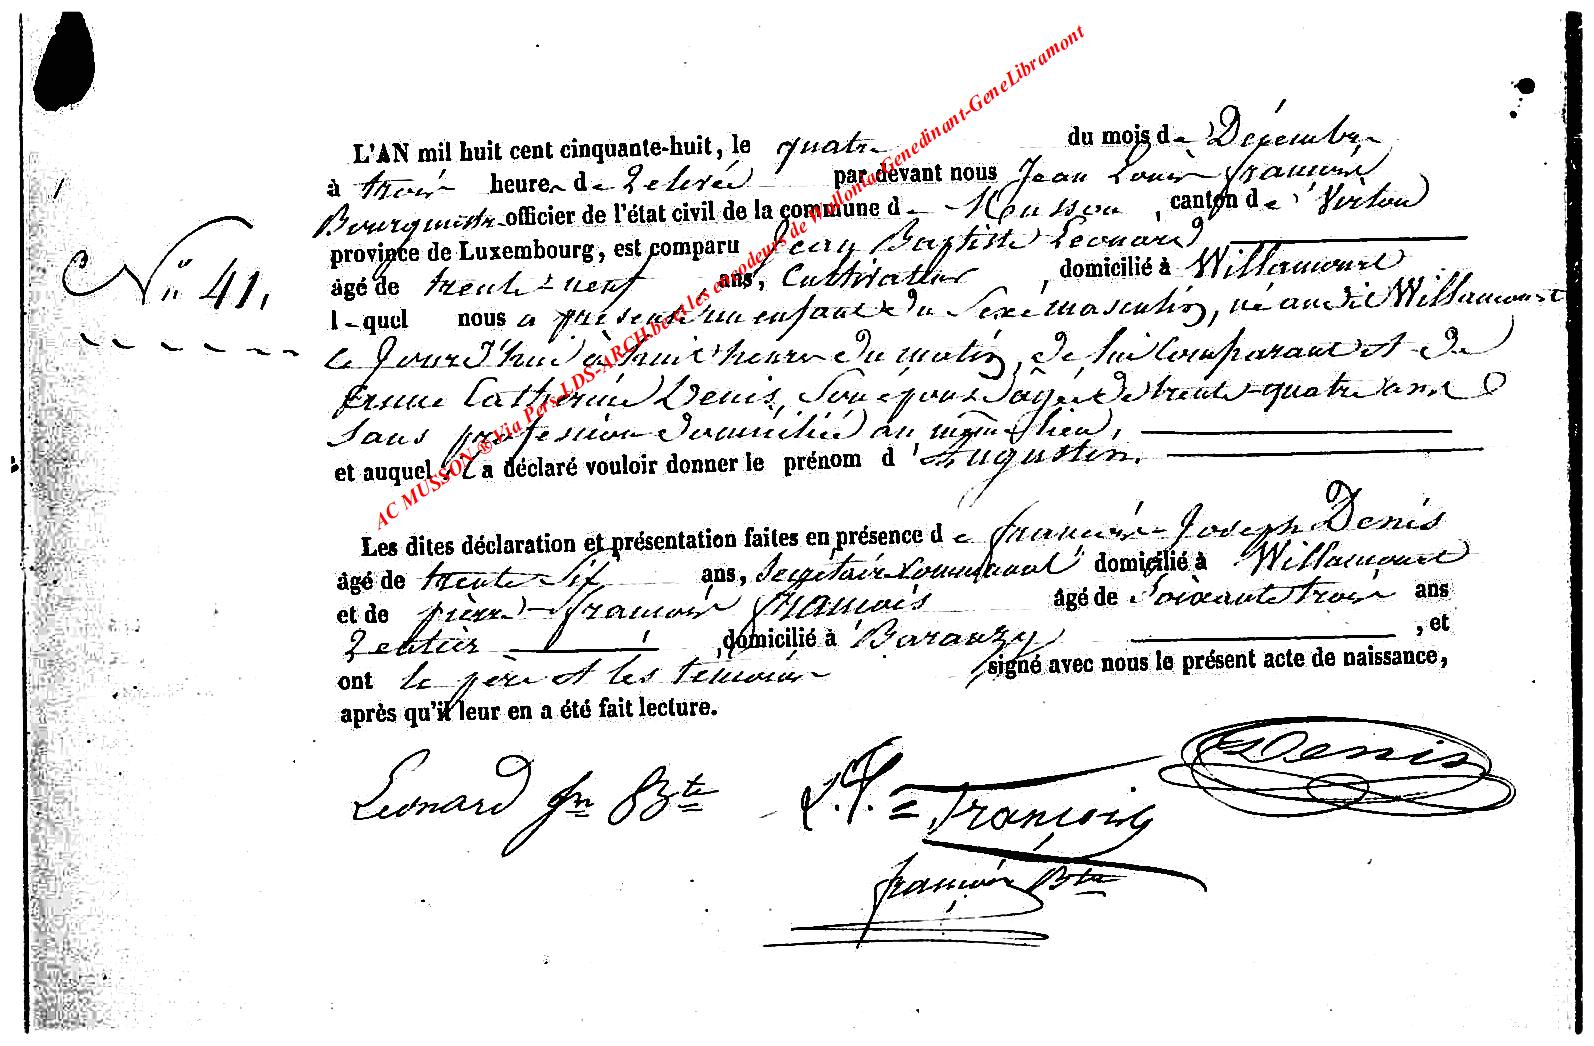 L'AN mil huit cent cinquante-huit, le quatre du mois de Décembre
à trois heures de relevée par devant nous Jean Louis François
Bourgmestre officier de l'état civil de la commune de Musson, canton de Virton
province de Luxembourg, est comparu Jean Baptiste Léonard
N° 41.
âgé de trente-neuf ans, Cultivateur, domicilié à Willancourt
lequel nous a présenté un enfant du Sexe masculin, né audit Willancourt
ce Jourd'hui à huit heures du matin, de lui Comparant et de
Catherine Denis, Son épouse âgée de trente-quatre ans
Sans profession domiciliée au même lieu,
et auquel il a déclaré vouloir donner le prénom d'Augustin.
Les dites déclaration et présentation faites en présence de François-Joseph Denis
âgé de trente Six ans, Secrétaire Communal domicilié à Willancourt
et de pierre-François François âgé de Soixante trois ans
Rentier, domicilié à Baranzy, et
ont le père et les témoins signé avec nous le présent acte de naissance,
après qu'il leur en a été fait lecture.
Leonard Jn Bte
P. F. = François
Denis
François Bte
AC MUSSON ® Via Pers-LDS-ARCH.be et les encodeurs de Wallonia-Genedinant-GeneLibramont